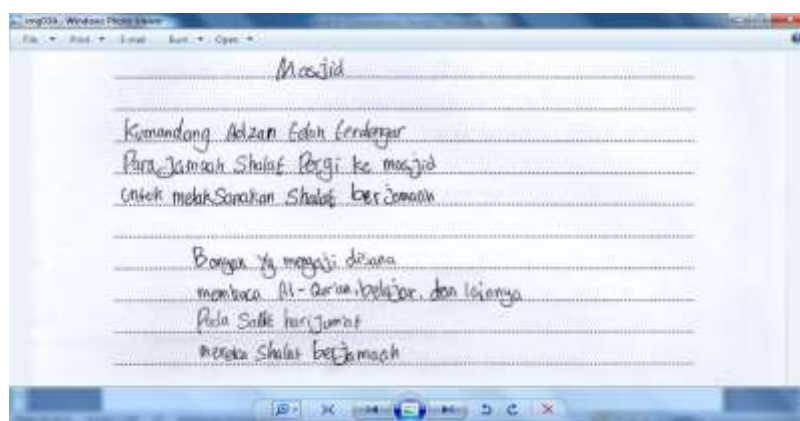 img034 - Windows Photo Viewer
File Print E-mail Burn Open
Masjid
Kumandang Adzan telah terdengar
Para Jamaah Shalat Pergi ke masjid
untuk melaksanakan Shalat berjamaah
yg mengaji disana
membaca Al-Qur'an, belajar, dan lainnya
Pada hari Jumat
mereka Shalat berjamaah